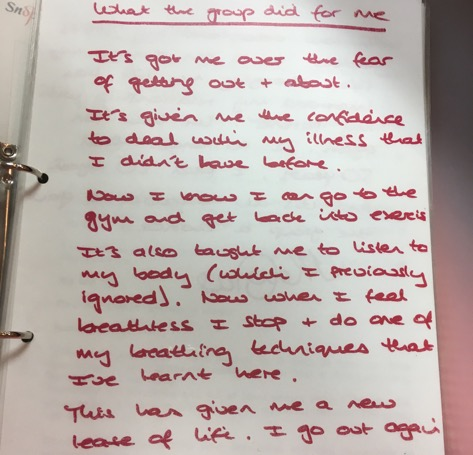 What the group did for me
It's got me over the fear
of getting out + about.
It's given me the confidence
to deal with my illness that
I didn't have before.
Now I know I can go to the
gym and get back into exercis
It's also taught me to listen to
my body (which I previously
ignored). Now when I feel
breathless I stop + do one of
my breathing techniques that
I've learnt here.
This has given me a new
lease of life. I go out again